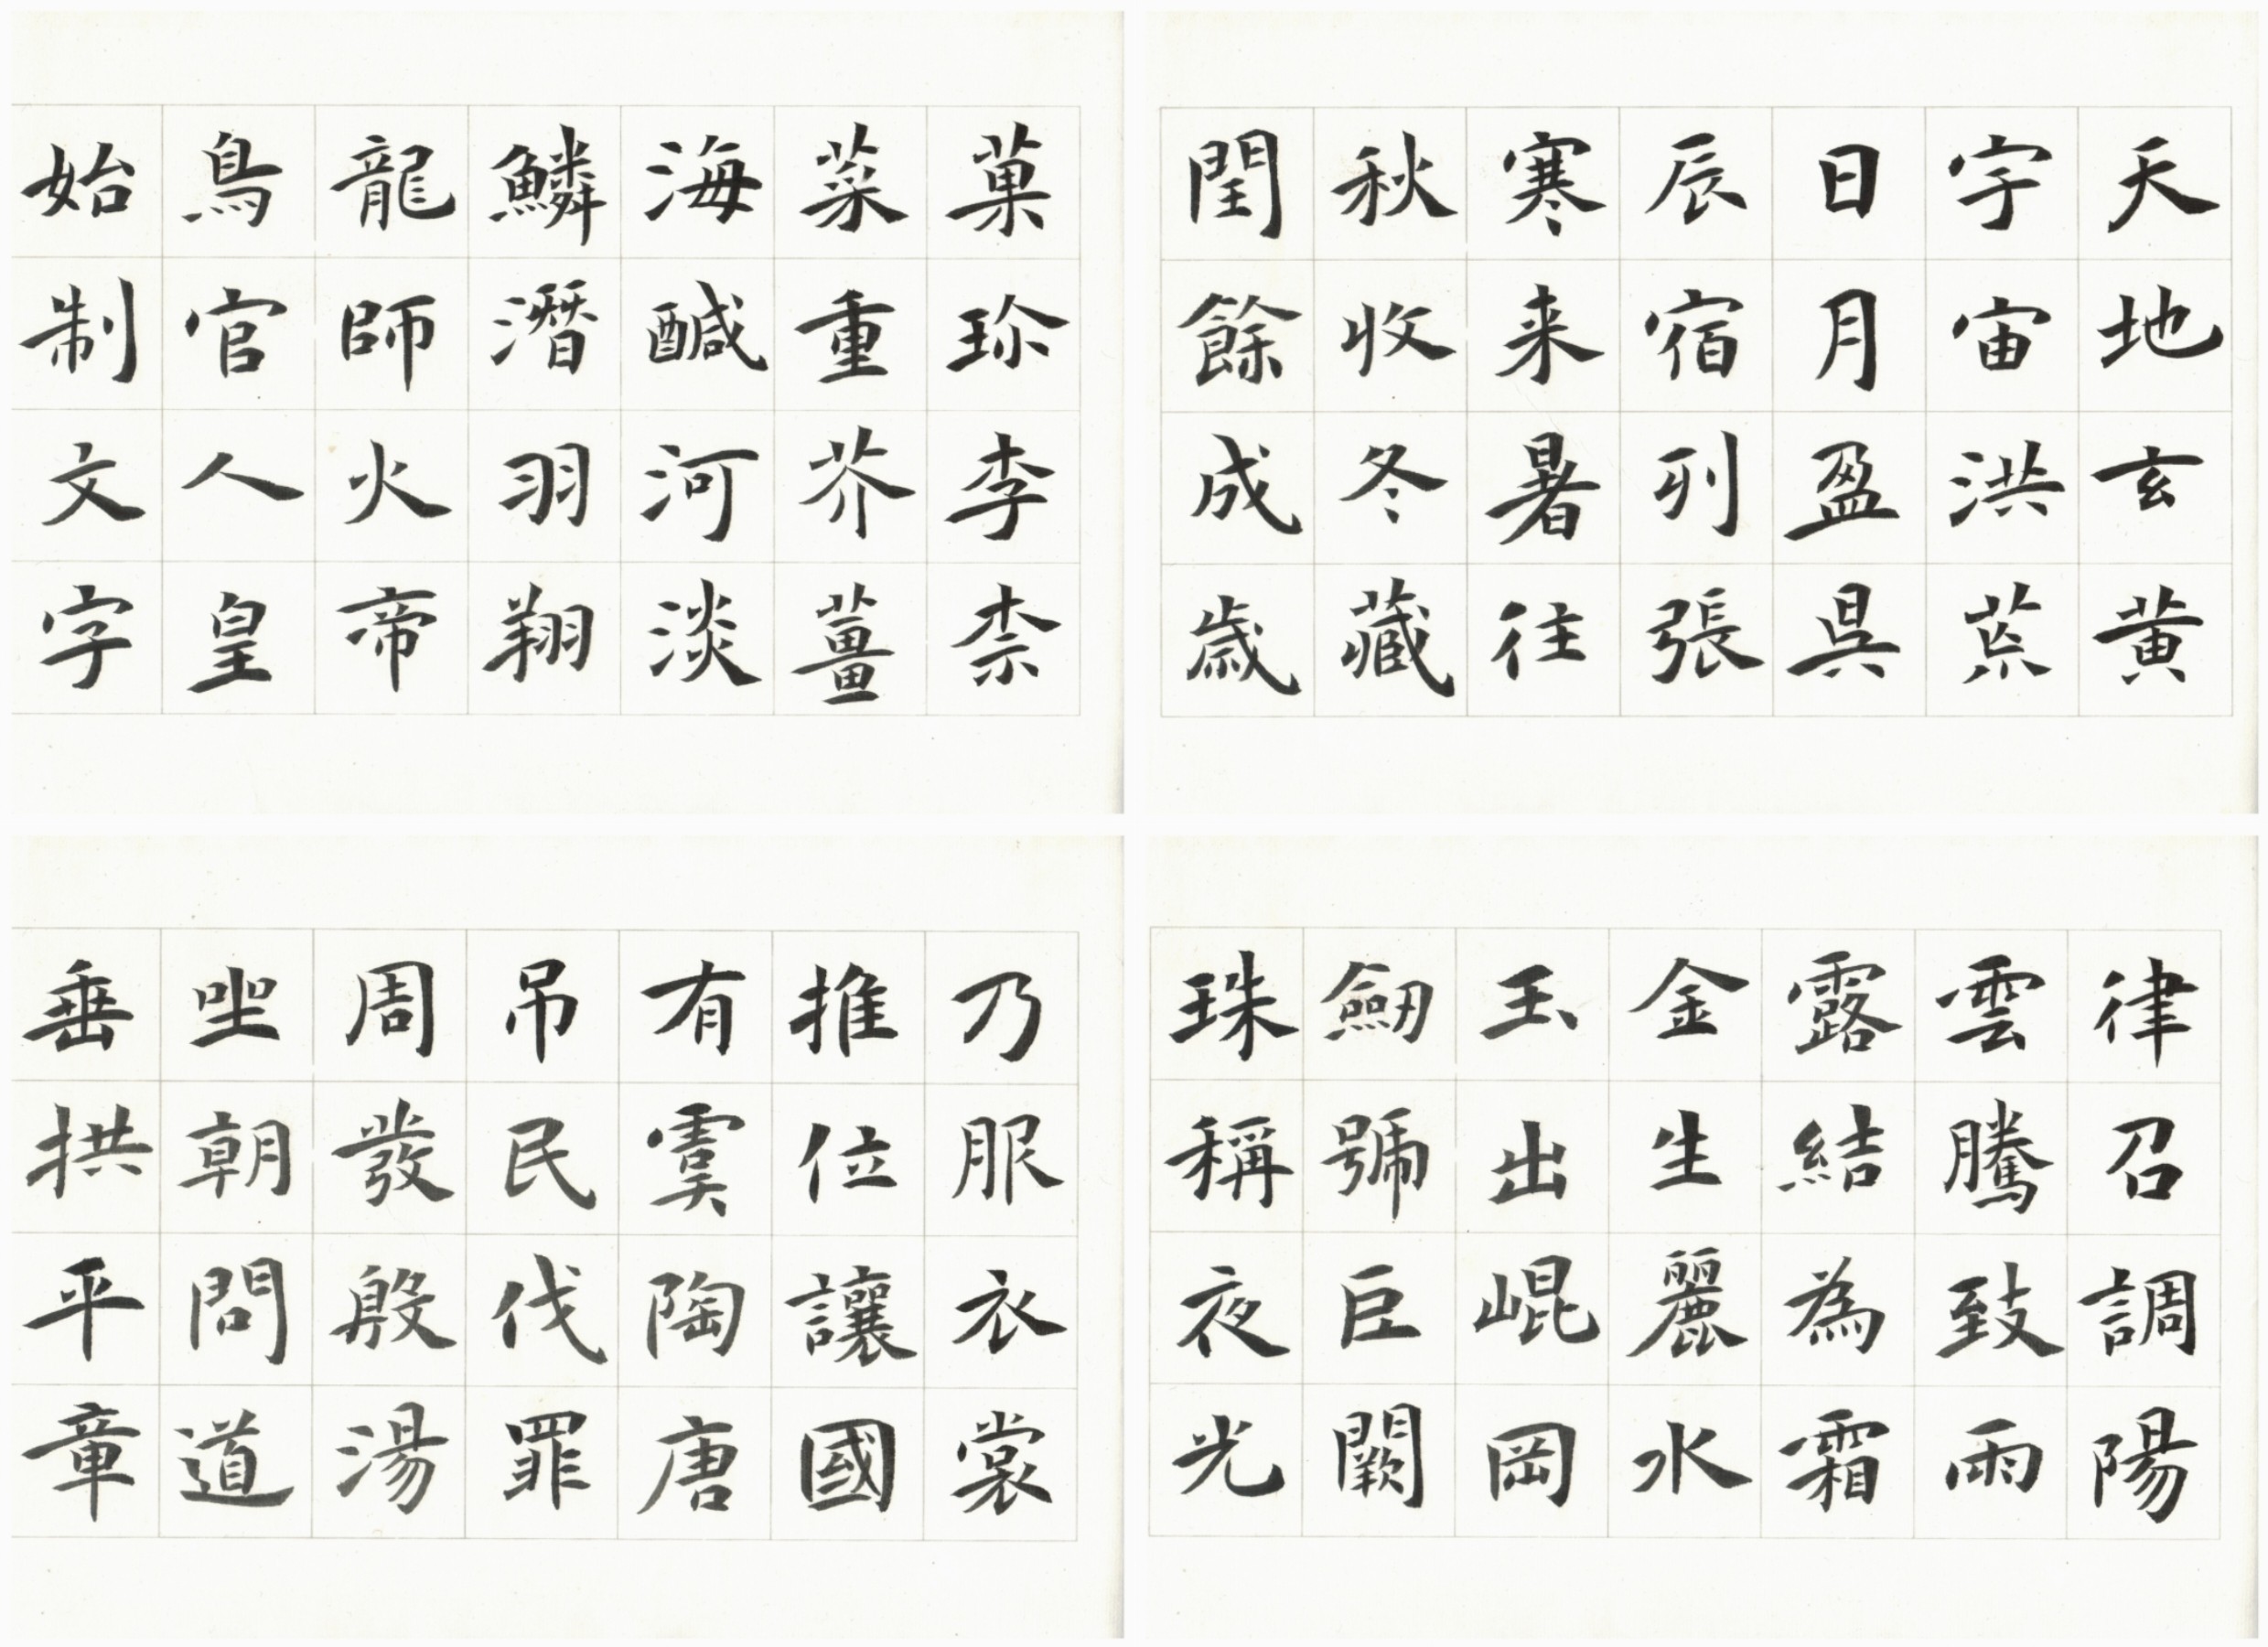 天地玄黄
宇宙洪荒
日月盈昃
辰宿列張
寒来暑往
秋收冬藏
閏餘成歳
律召調陽
雲騰致雨
露結為霜
金生麗水
玉出崐岡
劔號巨闕
珠稱夜光
菓珍李柰
菜重芥薑
海醎河淡
鱗潛羽翔
龍師火帝
鳥官人皇
始制文字
乃服衣裳
推位讓國
有虞陶唐
吊民伐罪
周發殷湯
坐朝問道
垂拱平章